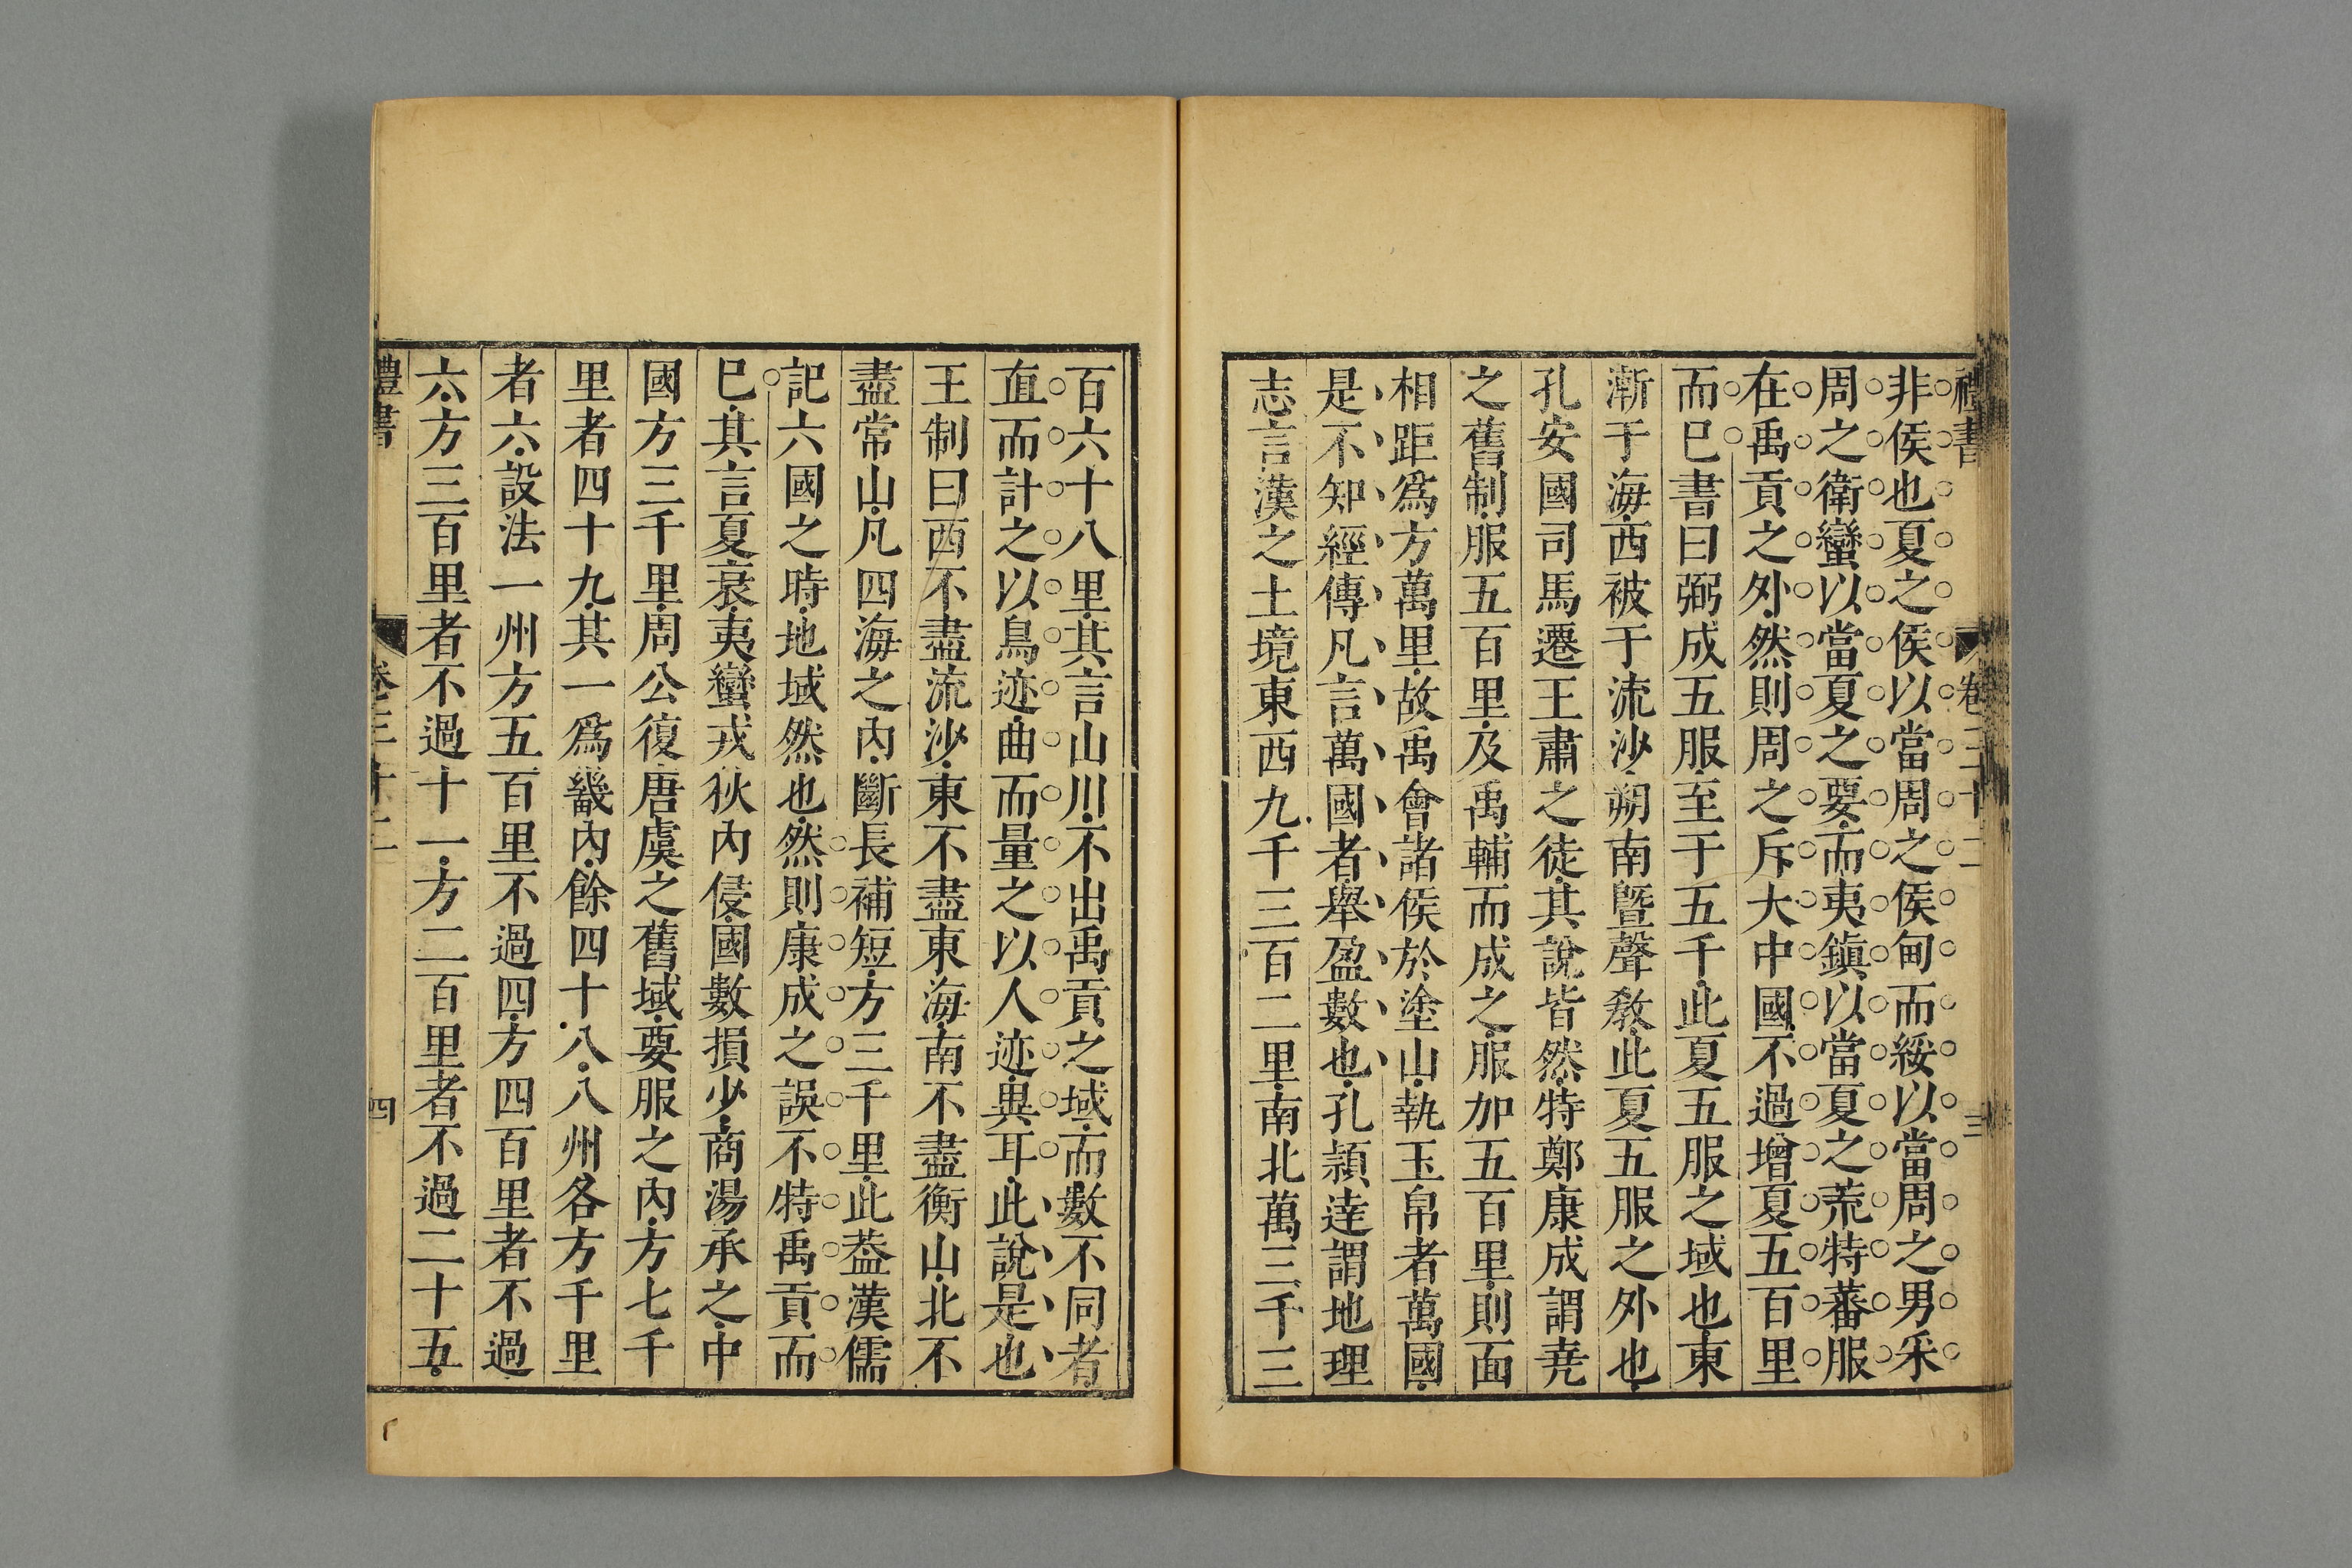 禮書
卷三十二
三
非侯也夏之侯以當周之侯甸而綏以當周之男采
周之衛蠻以當夏之要而夷鎮以當夏之荒特蕃服
在禹貢之外然則周之斥大中國不過增夏五百里
而巳書曰弼成五服至于五千此夏五服之域也東
漸于海西被于流沙朔南曁聲敎此夏五服之外也
孔安國司馬遷王肅之徒其說皆然特鄭康成謂堯
之舊制服五百里及禹輔而成之服加五百里則面
相距爲方萬里故禹會諸侯於塗山執玉帛者萬國
是不知經傳凡言萬國者舉盈數也孔穎達謂地理
志言漢之土境東西九千三百二里南北萬三千三
百六十八里其言山川不出禹貢之域而數不同者
直而計之以鳥迹曲而量之以人迹異耳此說是也
王制曰西不盡流沙東不盡東海南不盡衡山北不
盡常山凡四海之內斷長補短方三千里此葢漢儒
記六國之時地域然也然則康成之誤不特禹貢而
巳其言夏衰夷蠻戎狄內侵國數損少商湯承之中
國方三千里周公復唐虞之舊域要服之內方七千
里者四十九其一爲畿內餘四十八八州各方千里
者六設法一州方五百里不過四方四百里者不過
六方三百里者不過十一方二百里者不過二十五
禮書
卷三十二
四